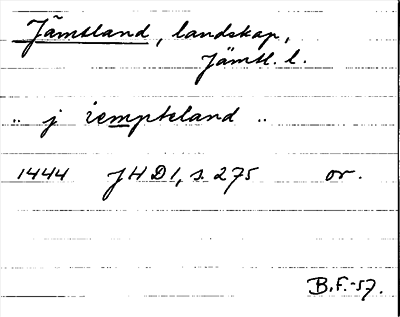 Jämtland, landskap,
Jämtl. l.
" j iempteland "
1444 JHD 1, s. 275 or.
B.F.-57.